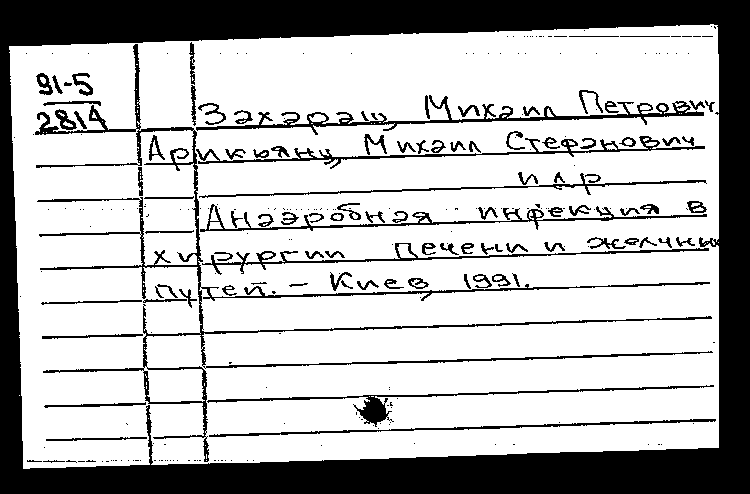 91-5
2814
Захараш, Михаил Петрович.
Арикьянц, Михаил Стефанович
и др
Анаэробная инфекция в
хирургии печени и желчных
путей. – Киев, 1991.